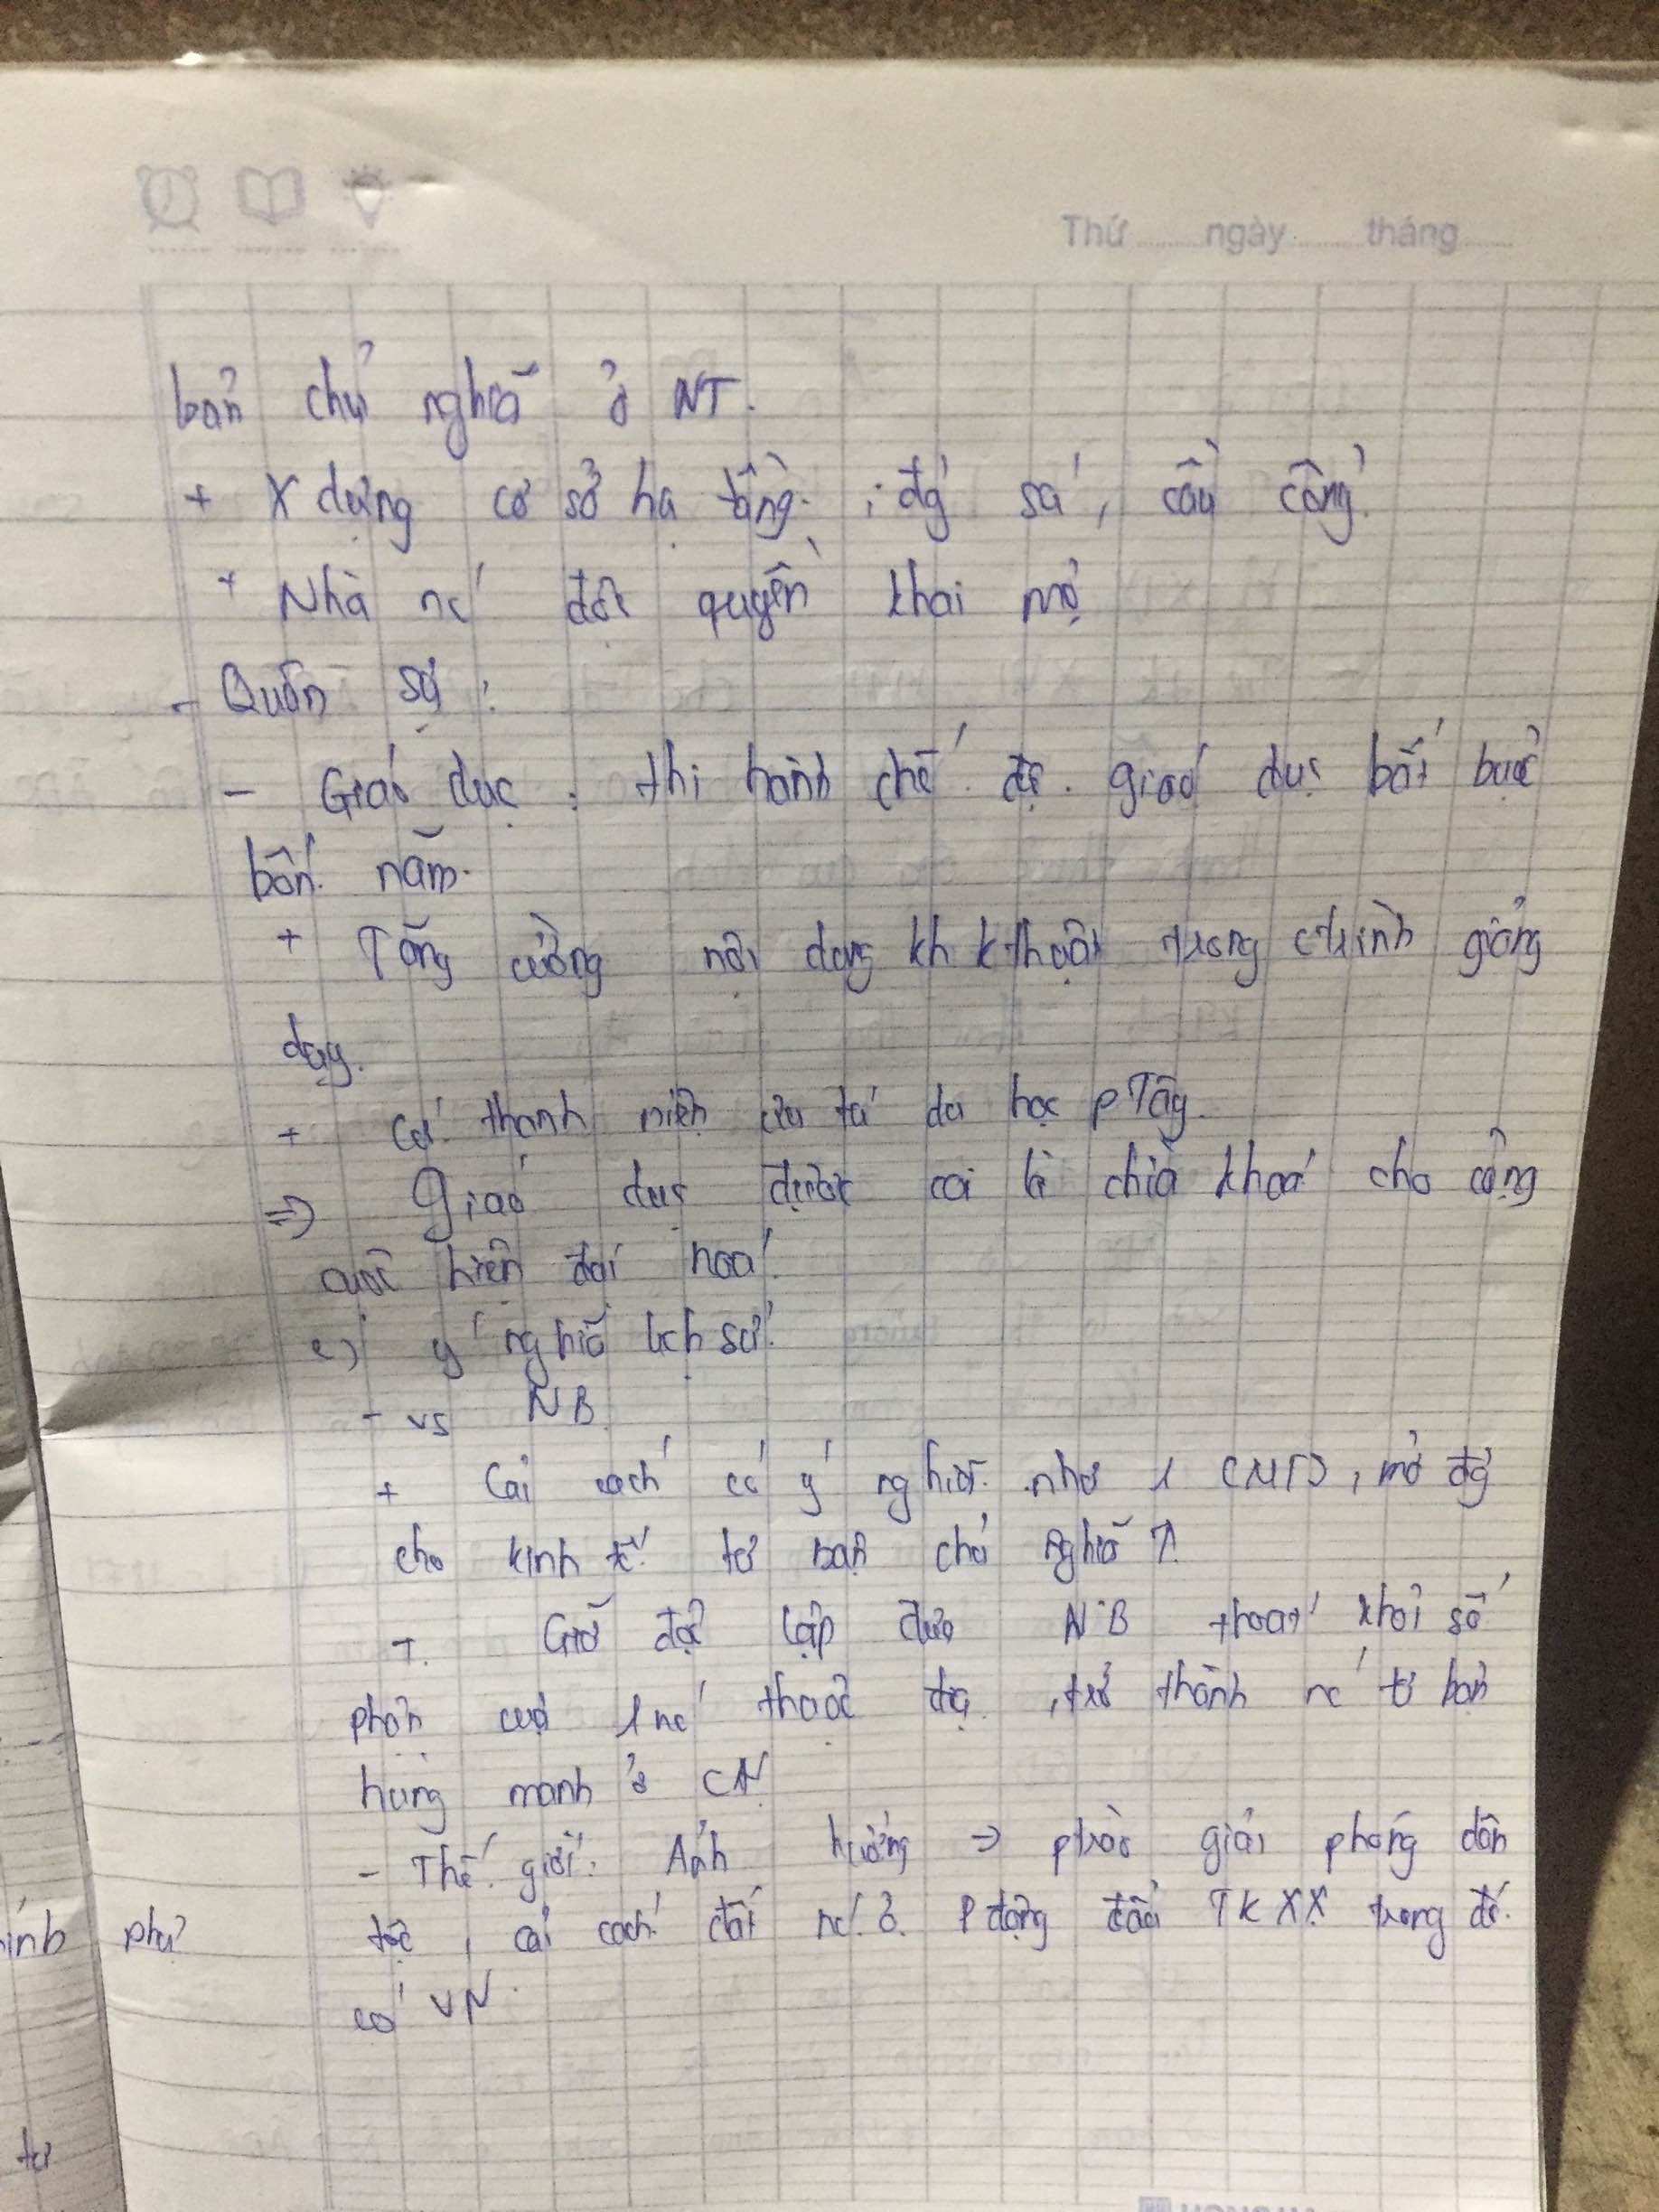 Thứ ........ ngày ........ tháng ......
bản chủ nghĩa ở NT.
+ X dựng cơ sở hạ tầng : đg sá, cầu cống
+ Nhà nc độc quyền khai mỏ
- Quân sự :
- Giáo dục : thi hành chế độ giáo dục bắt buộc
bốn năm.
+ Tăng cường nội dung kh kthuật trong ctrình giảng
dạy.
+ Cử thanh niên ưu tú du học pTây.
=> Giáo dục được coi là chìa khoá cho công
cuộc hiện đại hoá.
c) ý nghĩa lịch sử.
- vs NB
+ Cải cách có ý nghĩa như 1 CMTS, mở đg
cho kinh tế tư bản chủ nghĩa ↑.
+ Giữ độc lập đưa NB thoát khỏi số
phận của 1 nc thuộc địa, trở thành nc tư bản
hùng mạnh ở CÁ
- Thế giới: Ảnh hưởng => ptrào giải phóng dân
tộc, cải cách đất nc ở P đông đầu TK XX trong đó
có VN.
phủ
tư